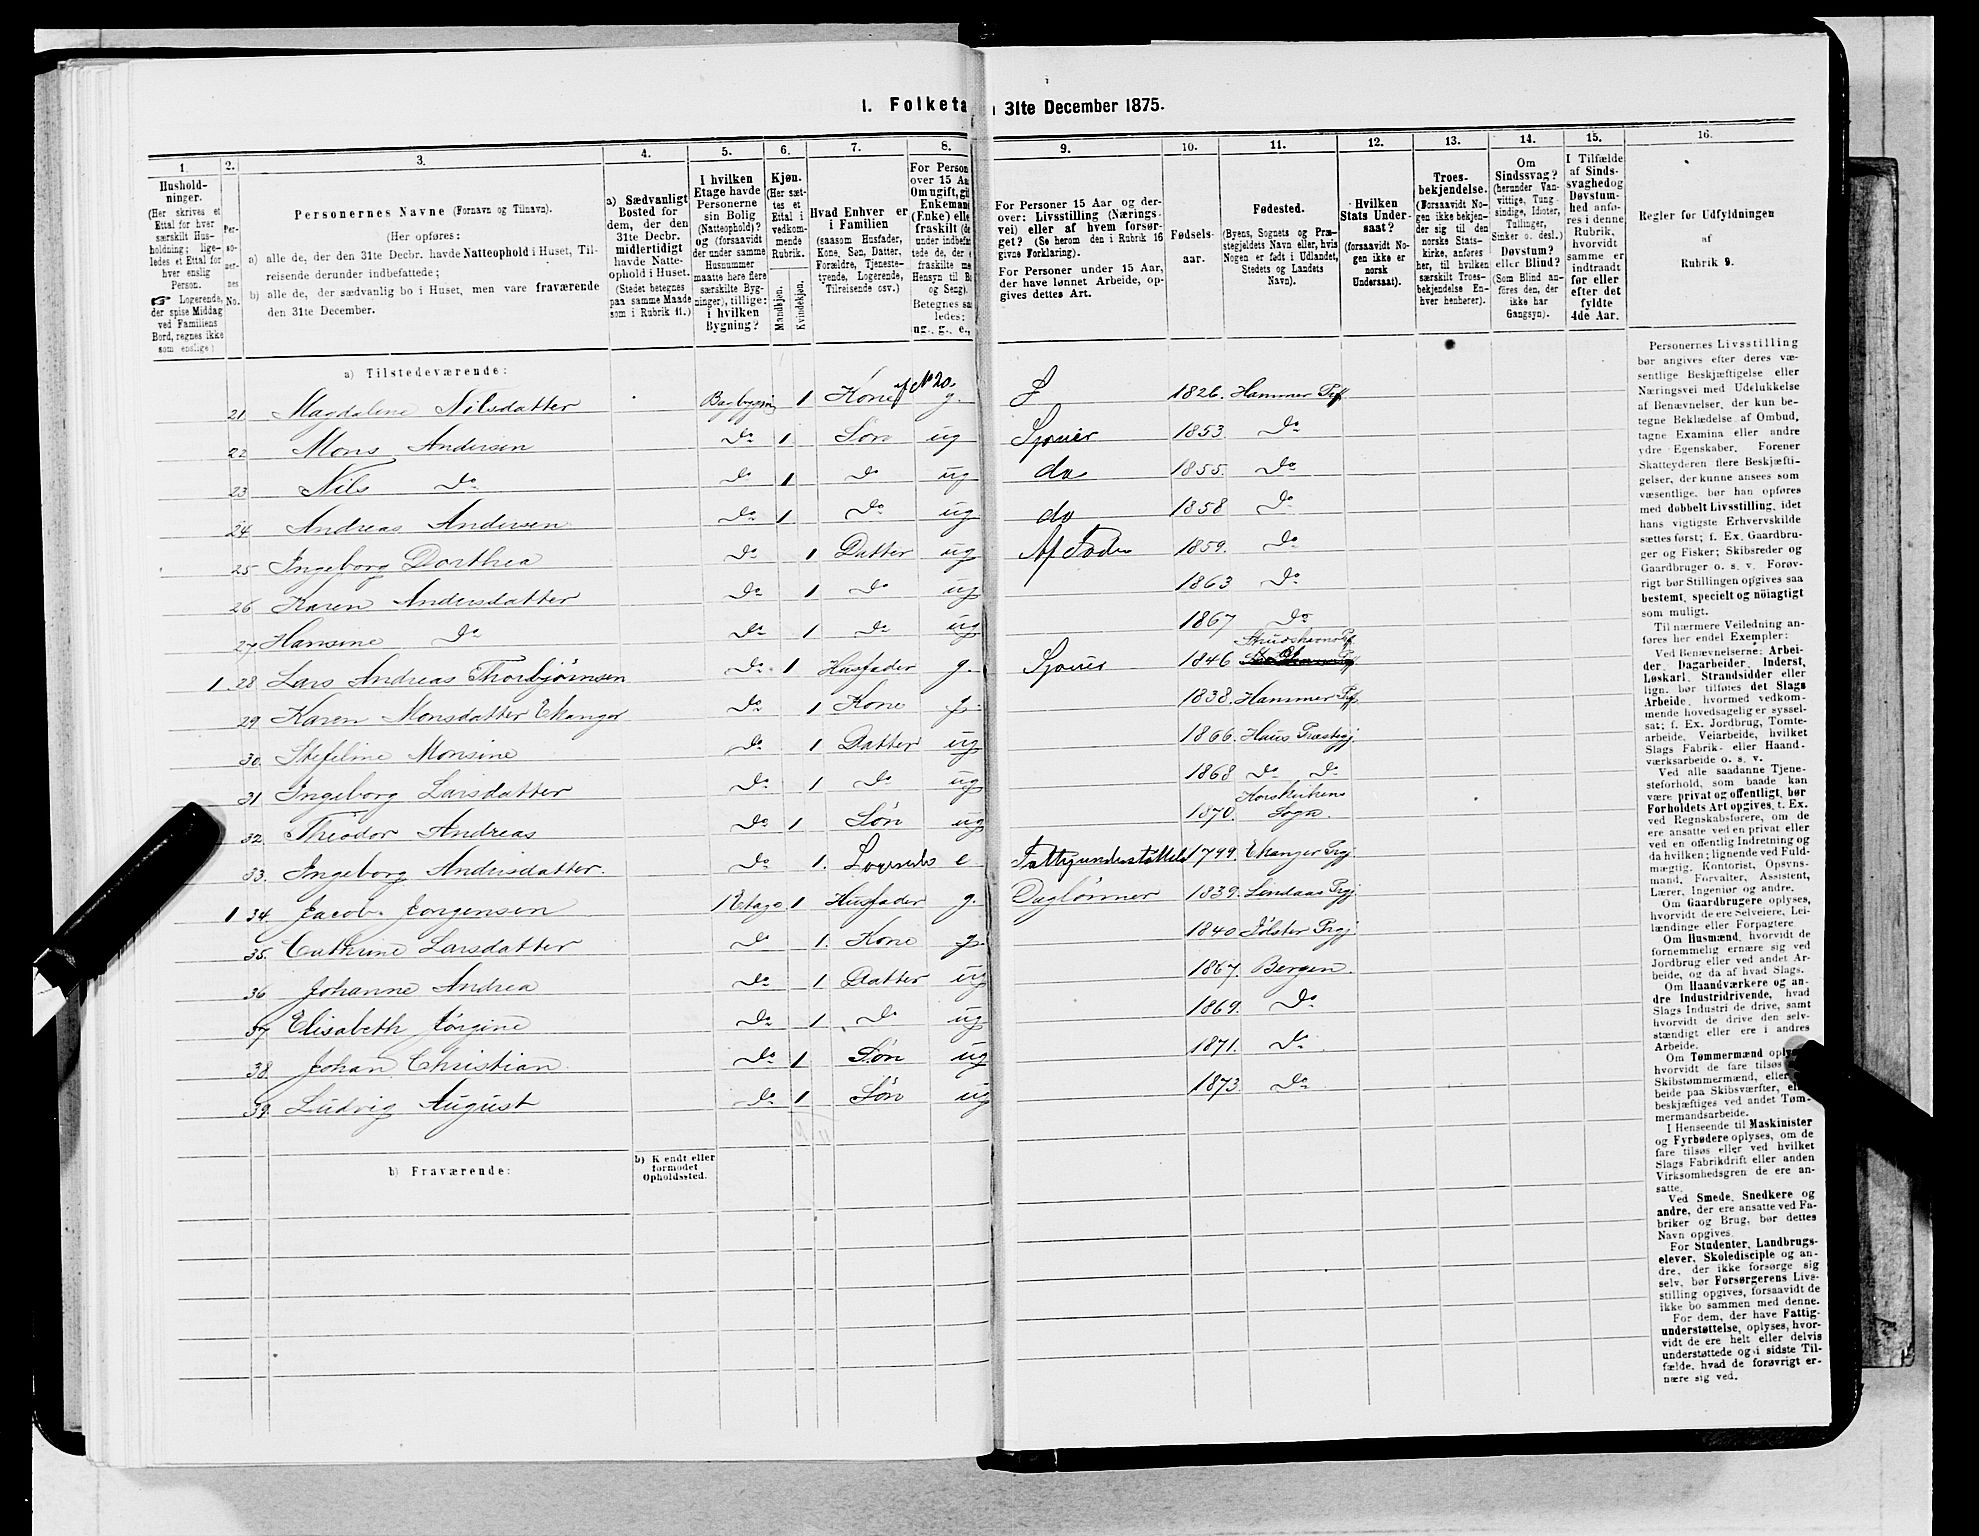 1. Folketa 31te December 1875.
1. 2. 3. 4. 5. 6. 7. 8. 9. 10. 11. 12. 13. 14. 15. 16.
Hushold-
ninger.
(Her skrives et
Ettal for hver
særskilt Hus-
holdning; lige-
ledes et Ettal for
hver enslig
Person.
☞ Logerende,
der spise Middag
ved Familiens
Bord, regnes ikke
som enslige)
Per-
so-
ner-
nes
No.
Personernes Navne (Fornavn og Tilnavn).
(Her opføres:
a) alle de, der den 31te Decbr. havde Natteophold i Huset, Til-
reisende derunder indbefattede;
b) alle de, der sædvanlig bo i Huset, men vare fraværende
den 31te December.
a) Sædvanligt
Bosted for
dem, der den
31te Decbr.
midlertidigt
havde Natte-
ophold i Huset.
(Stedet betegnes
paa samme Maade
som i Rubrik 11.)
I hvilken
Etage havde
Personerne
sin Bolig
(Natteophold)?
og (forsaavidt
der under samme
Husnummer
maatte høre flere
særskilte Byg-
ninger), tillige:
i hvilken
Bygning?
Kjøn.
(Her sæt-
tes et
Ettal i
vedkom-
mende
Rubrik.
Mandkjøn.
Kvindekjøn.
Hvad Enhver er
i Familien
(saasom Husfader,
Kone, Søn, Datter,
Forældre, Tjeneste-
tyende, Logerende,
Tilreisende osv.)
For Person
over 15 Aa
Om ugift, gi
Enkeman
(Enke) elle
fraskilt (de
under indbefat
tede de, der e
fraskilte me
Hensyn til B
og Seng).
Betegnes saa
ledes:
ug., g., e.,
For Personer 15 Aar og der-
over: Livsstilling (Nærings-
vei) eller af hvem forsør-
get? (Se herom den i Rubrik 16
givne Forklaring).
For Personer under 15 Aar,
der have lønnet Arbeide, op-
gives dettes Art.
Fødsels-
aar.
Fødested.
(Byens, Sognets og Præ-
stegjeldets Navn eller, hvis
Nogen er født i Udlandet,
Stedets og Landets
Navn).
Hvilken
Stats Under-
saat?
(forsaavidt No-
gen ikke er
norsk
Undersaat).
Troes-
bekjendelse.
(Forsaavidt No-
gen ikke bekjen-
der sig til den
norske Stats-
kirke, anføres
her, til hvilken
særskilt Troes-
bekjendelse En-
hver henhører).
Om
Sindssvag?
(herunder Van-
vittige, Tung
sindige, Idioter,
Tullinger,
Sinker o. desl.)
Døvstum?
eller Blind?
(Som Blind an-
føres den, der
ikke har
Gangsyn).
I Tilfælde
af Sinds-
svaghed og
Døvstum-
hed anfø-
res i denne
Rubrik,
hvorvidt
samme er
indtraadt
før eller
efter det
fyldte
4de Aar.
Regler før Udfyldningen
af
Rubrik 9.
a) Tilstedeværende:
21 Magdalene Nilsdatter Bagbygn 1 Kone af No 20. g. 1826. Hammer Prf
22 Mons Andersen Do 1 Søn ug Sjouer 1853. Do
23 Nils Do Do 1 Do ug do 1855. Do
24 Andreas Andersen Do 1 Do ug do 1858 Do
25 Ingeborg Dorthea Do 1 Datter ug Af Fader 1859. Do
26 Karen Andersdatter Do 1 Do ug 1863 Do
27 Hansine Do Do 1 Do ug 1867 Do
1. 28 Lars Andreas Thorbjørnsen Do 1 Husfader g. Sjouer 1846
29 Karen Monsdatter Ekanger Do 1 Kone g. 1838. Hammer Prf
30. Stefeline Monsine Do 1 Datter ug 1866. Haus Præstegj.
31 Ingeborg Larsdatter Do 1 Do ug 1868 Do Do
32. Theodor Andreas Do 1 Søn ug 1870. Korskirkens Sogn.
33. Ingeborg Andersdatter. Do 1. Logerende e Fattigunderstøttels 1799. Ekanger Prgj
1 34 Jacob Jørgensen 1 Etage 1 Husfader g. Daglønner 1839. Lindaas Prgj
35. Cathrine Larsdatter Do 1. Kone g. 1840 Jølster Prgj
36 Johanne Andrea Do 1 Datter ug 1867. Bergen.
37 Elisabeth Jørgine Do 1 Do ug 1869. Do
38 Johan Christian Do 1 Søn ug 1871. Do
39. Ludvig August Do 1 Søn ug 1873. Do
b) Fraværende:
b) Kjendt eller
formodet
Opholdssted.
Personernes Livsstilling
bør angives efter deres væ-
sentlige Beskjæftigelse eller
Næringsvei med Udelukkelse
af Benævnelser, der kun be-
tegne Beklædelse af Ombud,
tagne Examina eller andre
ydre Egenskaber. Forener
Skatteyderen flere Beskjæfti-
gelser, der kunne ansees som
væsentlige, bør han opføres
med dobbelt Livsstilling, idet
hans vigtigste Erhvervskilde
sættes først; f. Ex. Gaardbru-
ger og Fisker; Skibsreder og
Gaardbruger o. s. v. Forøv-
rigt bør Stillingen opgives saa
bestemt, specielt og nöiagtigt
som muligt.
Til nærmere Veiledning an-
føres her endel Exempler:
Ved Benævnelserne: Arbei-
der, Dagarbeider, Inderst,
Løskarl, Strandsidder eller
lign. bør tilføies det Slags
Arbeide, hvormed vedkom-
mende hovedsagelig er syssel-
sat; f. Ex. Jordbrug, Tomte-
arbeide, Veiarbeide, hvilket
Slags Fabrik- eller Haand-
værksarbeide o. s. v.
Ved alle saadanne Tjene-
steforhold, som baade kan
være privat og offentligt, bør
Forholdets Art opgives, t. Ex.
ved Regnskabsførere, om de
ere ansatte ved en privat eller
ved en offentlig Indretning og
da hvilken; lignende ved Fuld-
mægtig, Kontorist, Opsyns-
mand, Forvalter, Assistent,
Lærer, Ingeniør og andre.
Om Gaardbrugere oplyses,
hvorvidt de ere Selveiere, Lei-
lændinge eller Forpagtere.
Om Husmænd, hvorvidt de
fornemmelig ernære sig ved
Jordbrug eller ved andet Ar-
beide, og da af hvad Slags.
Om Haandværkere og an-
dre Industridrivende, hvad
Slags Industri de drive, samt
hvorvidt de drive den selv-
stændigt eller ere i andres
Arbeide.
Om Tømmermænd oply
hvorvidt de fare tilsøs
Skibstømmermænd, eller
beide paa Skibsværfter, el
beskjæftiges ved andet Tøm-
mermandsarbeide.
I Henseende til Maskinister
og Fyrbødere oplyses, om de
fare tilsøs eller ved hvilket
Slags Fabrikdrift eller anden
Virksomhedsgren de ere an-
satte.
Ved Smede, Snedkere og
andre, der ere ansatte ved Fa-
briker og Brug, bør dettes
Navn opgives.
For Studenter, Landbrugs-
elever, Skoledisciple og an-
dre, der ikke forsørge sig
selv, bør Forsørgerens Livs-
stilling opgives, forsaavidt de
ikke bo sammen med denne.
For dem, der have Fattig-
understøttelse, oplyses, hvor-
vidt de ere helt eller delvis
understøttede og i sidste Til-
fælde, hvad de forøvrigt er-
nære sig ved.